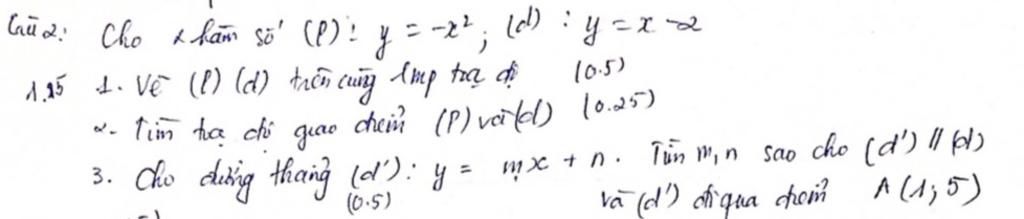 Câu 2: Cho 2 hàm số (P): y = -x²; (d): y = x - 2
1.25 1. Vẽ (P) (d) trên cùng 1mp tọa độ (0.5)
2. Tìm tọa độ giao điểm (P) và (d) (0.25)
3. Cho đường thẳng (d'): y = mx + n. Tìm m, n sao cho (d') // (d)
(0.5) và (d') đi qua điểm A (1; 5)